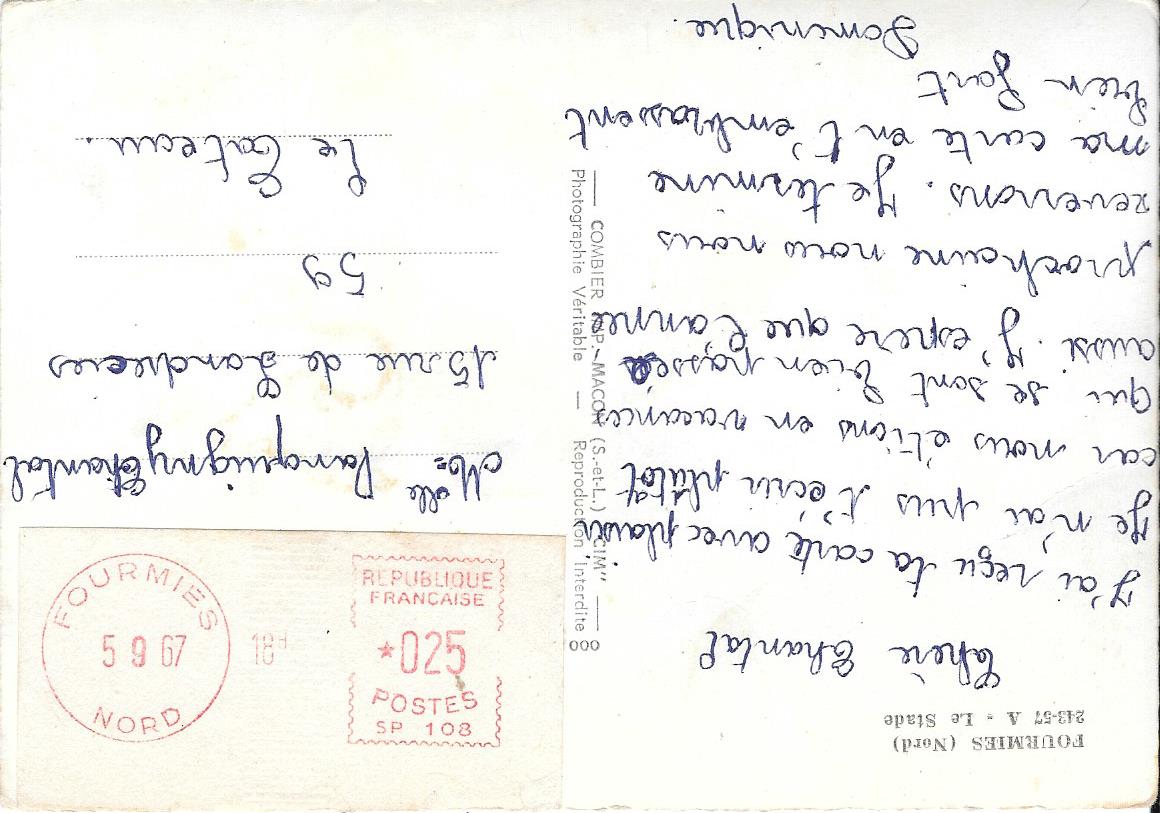 FOURMIES (Nord)
243-57 A - Le Stade
Chère Chantal
J'ai reçu ta carte avec plaisir
Je n'ai pus t'écrir plutôt
car nous étions en vacances
qui se sont bien passée
aussi. J'espère que l'année
prochaine nous nous
reverrons. Je termine
ma carte en t'embrassent
bien fort
Dominique.
COMBIER IMP. MACON (S.-et-L.) "CIM"
Photographie Véritable — Reproduction Interdite
000
REPUBLIQUE
FRANÇAISE
*025
POSTES
SP 108
FOURMIES
5 9 67
18H
NORD
Melle Chantal
15 rue de Landrecies
59
Le Cateau.